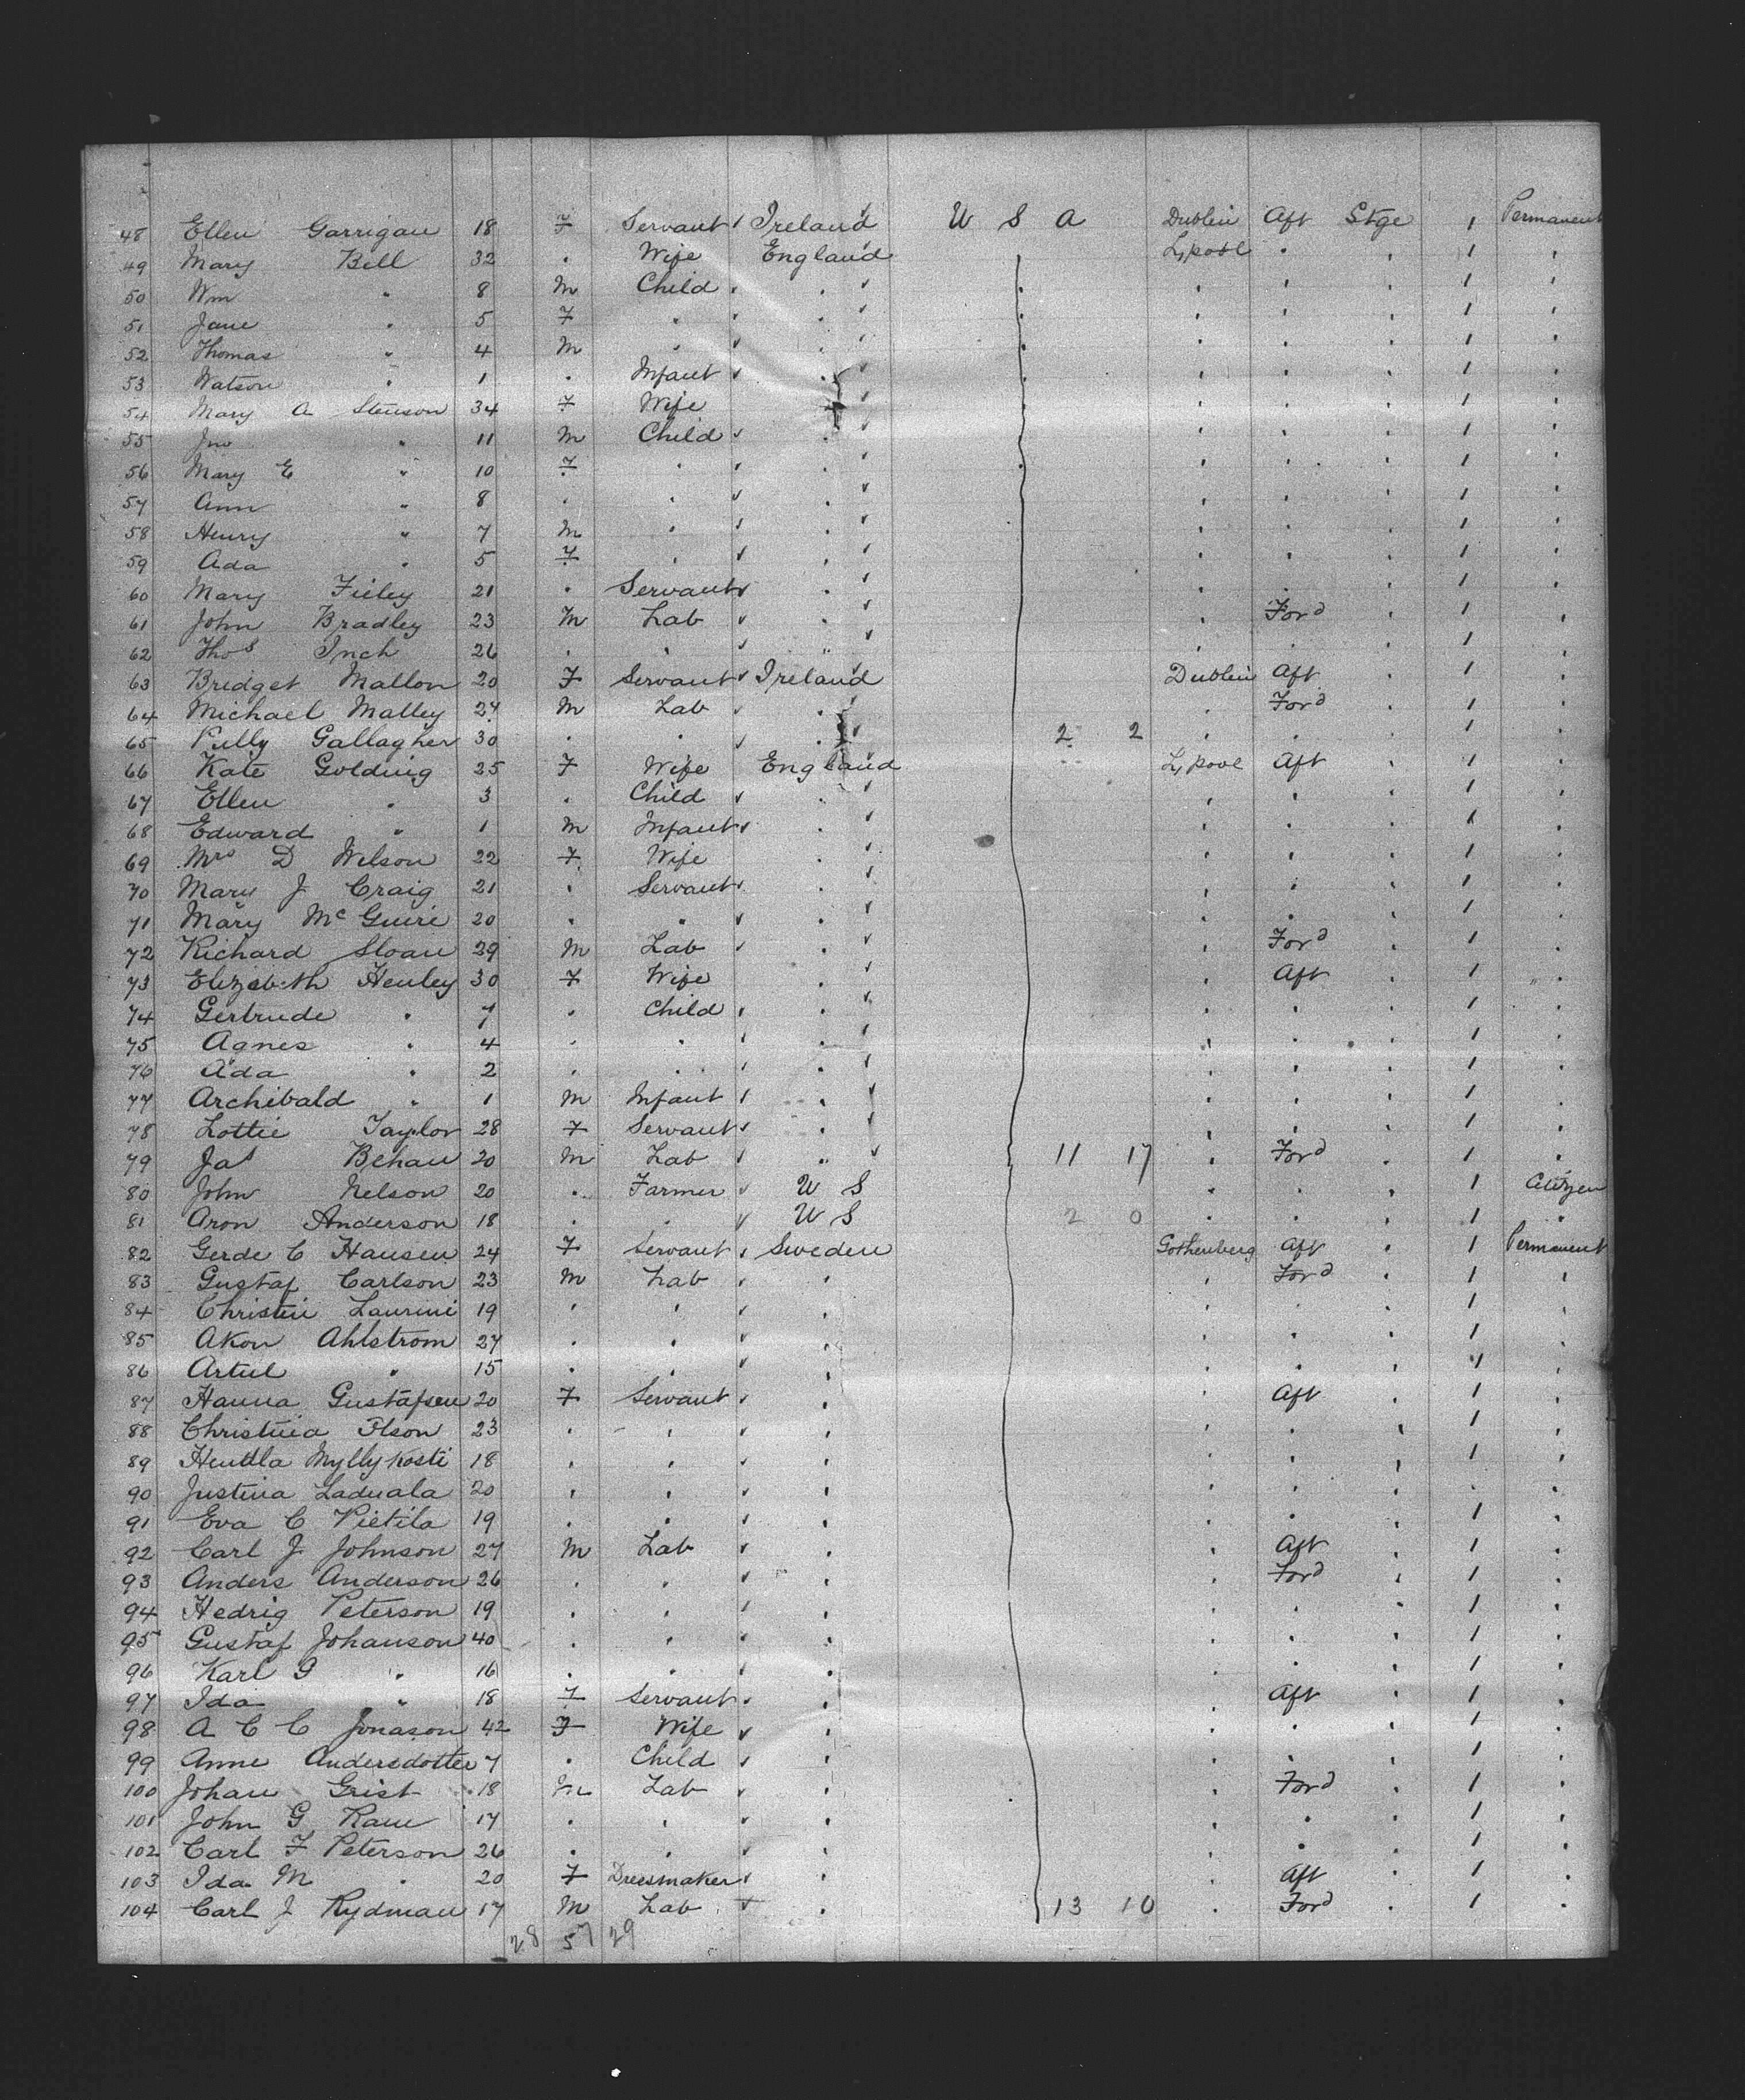 48 Ellen Garrigan 18 F Servant Ireland U S A Dublin Aft Stge 1 Permanent
49 Mary Bell 32 " Wife England " Lpool " " 1 "
50 Wm " 8 M Child " " " " " 1 "
51 Jane " 5 F " " " " " " 1 "
52 Thomas " 4 M " " " " " " 1 "
53 Watson " 1 " Infant " " " " " 1 "
54 Mary A Stenson 34 F Wife " " " " 1 "
55 Jno " 11 M Child " " " " 1 "
56 Mary E " 10 F " " " " " " 1 "
57 Ann " 8 " " " " " " 1 "
58 Henry " 7 M " " " " " 1 "
59 Ada " 5 F " " " " " 1 "
60 Mary Fieley 21 " Servant " " " " 1 "
61 John Bradley 23 M Lab " " Ford " 1 "
62 Thos Inch 26 " " " " " " 1 "
63 Bridget Mallon 20 F Servant Ireland Dublin Aft " 1 "
64 Michael Malley 24 M Lab " " Ford " 1 "
65 Gallagher 30 " " " 2 2 " " " 1 "
66 Kate Golding 25 F Wife England Lpool Aft " 1 "
67 Ellen " 3 " Child " " " " 1 "
68 Edward " 1 M Infant " " " " 1 "
69 Mrs D Wilson 22 F Wife " " " " 1 "
70 Mary J Craig 21 " Servant " " " " 1 "
71 Mary McGuire 20 " " " " " " 1 "
72 Richard Sloan 29 M Lab " " Ford " 1 "
73 Elizabeth Henley 30 F Wife " " Aft " 1 "
74 Gertrude " 7 " Child " " " " 1 "
75 Agnes " 4 " " " " " " 1 "
76 Ada " 2 " " " " " " 1 "
77 Archibald " 1 M Infant " " " " 1 "
78 Lottie Taylor 28 F Servant " " " " 1 "
79 Jas Behan 20 M Lab " 11 17 " Ford " 1 "
80 John Nelson 20 " Farmer U S " " " 1 Citizen
81 Aron Anderson 18 " " U S 2 0 " " " 1 "
82 Gerde C Hansen 24 F Servant Sweden Gothenberg Aft " 1 Permanent
83 Gustaf Carlson 23 M Lab " " Ford " 1 "
84 Christin Laurini 19 " " " " " " 1 "
85 Akon Ahlstrom 27 " " " " " " 1 "
86 Artul " 15 " " " " " " 1 "
87 Hanna Gustafsen 20 F Servant " " Aft " 1 "
88 Christina 23 " " " " " " 1 "
89 Myllykosti 18 " " " " " " 1 "
90 Justina Laduala 20 " " " " " " "
91 Eva C Pietila 19 " " " " " " 1 "
92 Carl J Johnson 27 M Lab " " Aft " 1 "
93 Anders Anderson 26 " " " " Ford " 1 "
94 Hedrig Peterson 19 " " " " " " 1 "
95 Gustaf Johanson 40 " " " " " " 1 "
96 Karl G " 16 " " " " " " 1 "
97 Ida " 18 F Servant " " Aft " 1 "
98 A C C Jonason 42 F Wife " " " " 1 "
99 Anne Andersdotter 7 " Child " " " " 1 "
100 Johan Grist 18 M Lab " " Ford " 1 "
101 John G Ram 17 " " " " " " 1 "
102 Carl F Peterson 26 " " " " " " 1 "
103 Ida M " 20 F Dressmaker " " Aft " 1 "
104 Carl J Rydman 17 M Lab " 13 10 " Ford " 1 "
28 57 29